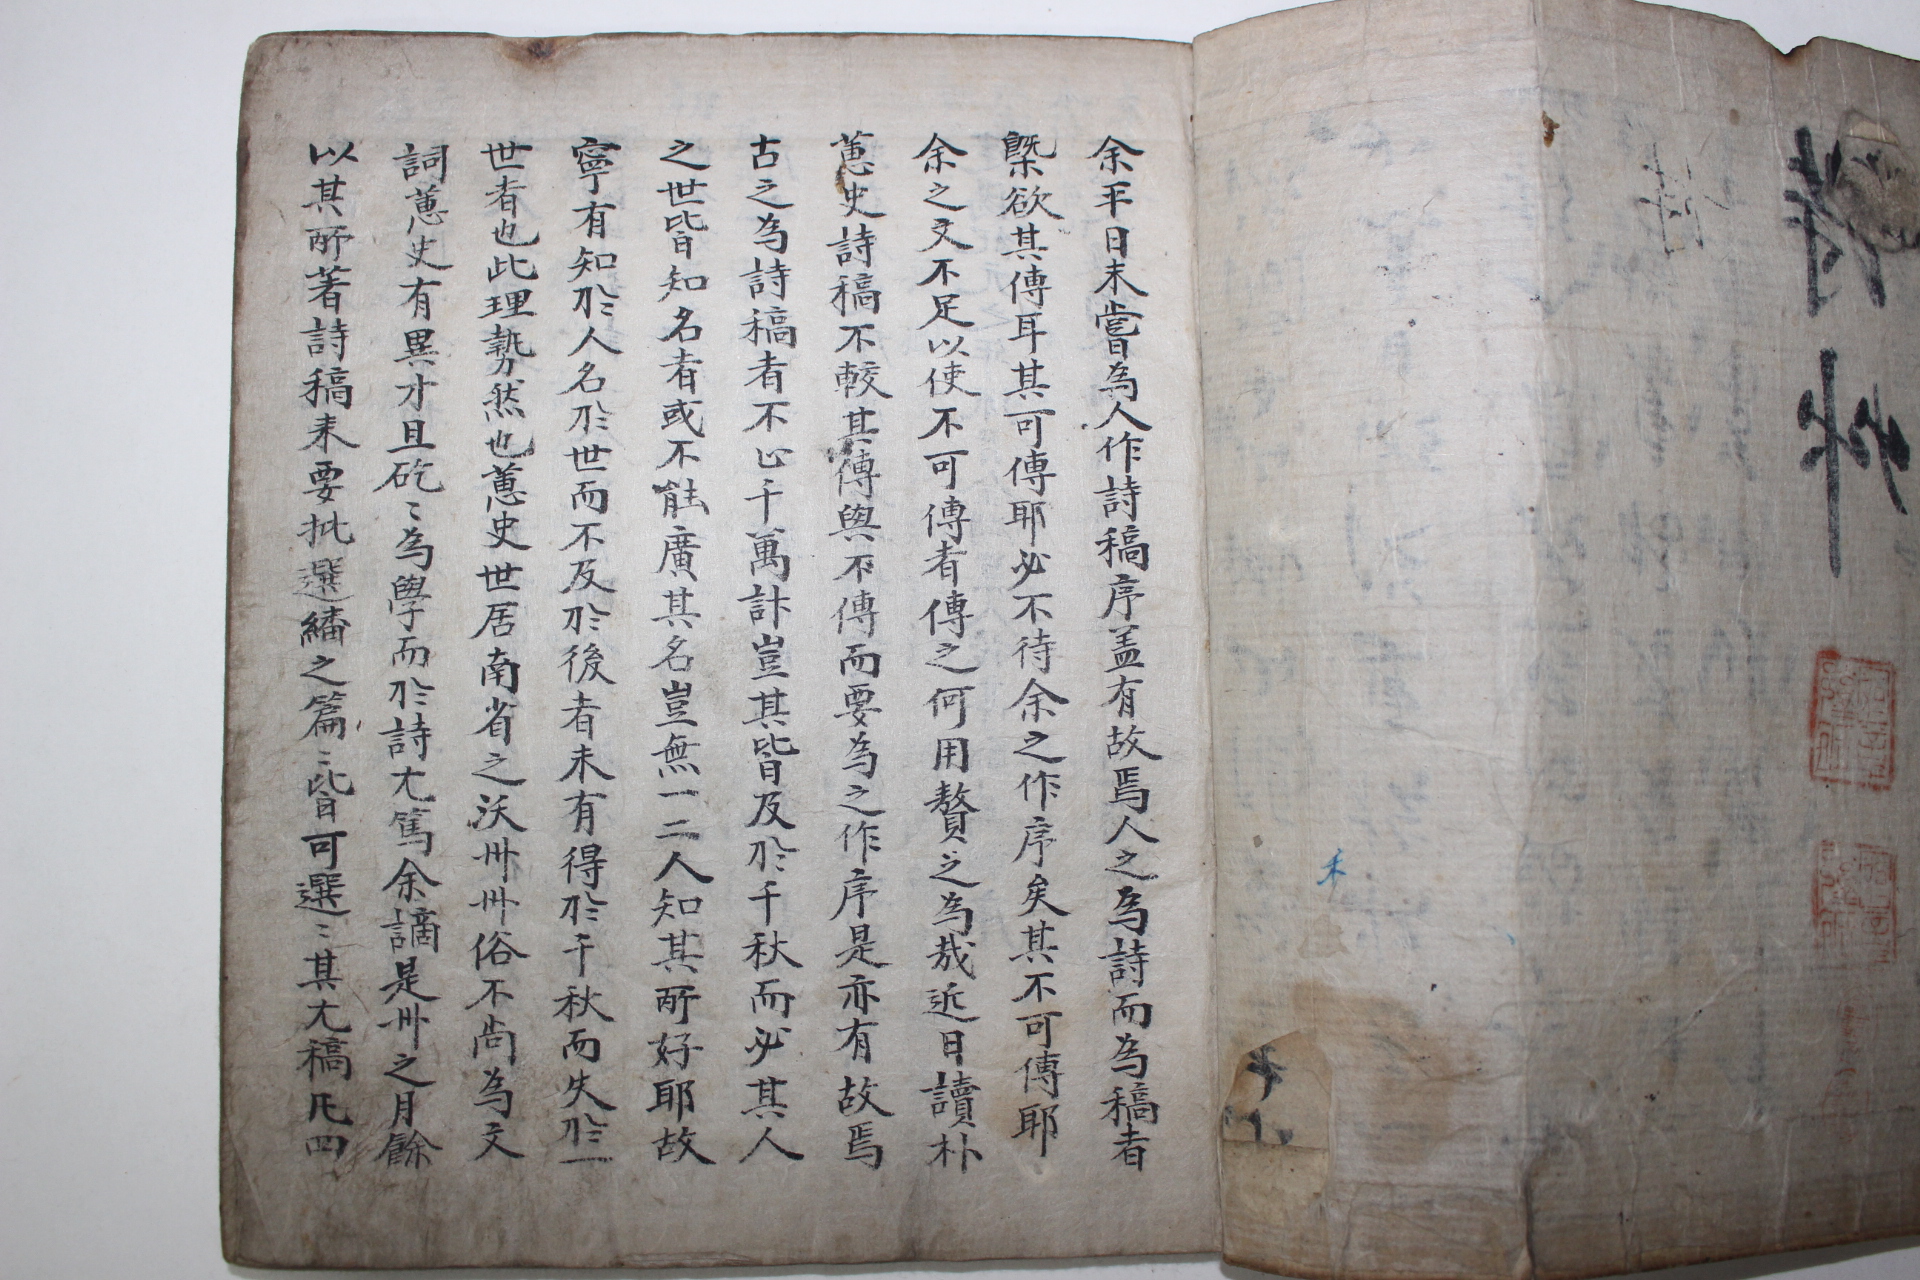 余平日未嘗為人作詩稿序盖有故焉人之為詩而為稿者
槩欲其傳耳其可傳耶必不待余之作序矣其不可傳耶
余之文不足以使不可傳者傳之何用贅之為哉近日讀朴
蕙史詩稿不較其傳與不傳而要為之作序是亦有故焉
古之為詩稿者不止千萬計豈其皆及於千秋而必其人
之世皆知名者或不能廣其名豈無一二人知其所好耶故
寧有知於人名於世而不及於後者未有得於千秋而失於一
世者也此理勢然也蕙史世居南省之沃州州俗不尚為文
詞蕙史有異才且矻〻為學而於詩尤篤余謫是州之月餘
以其所著詩稿来要批選繙之篇〻皆可選〻其尤稿凡四